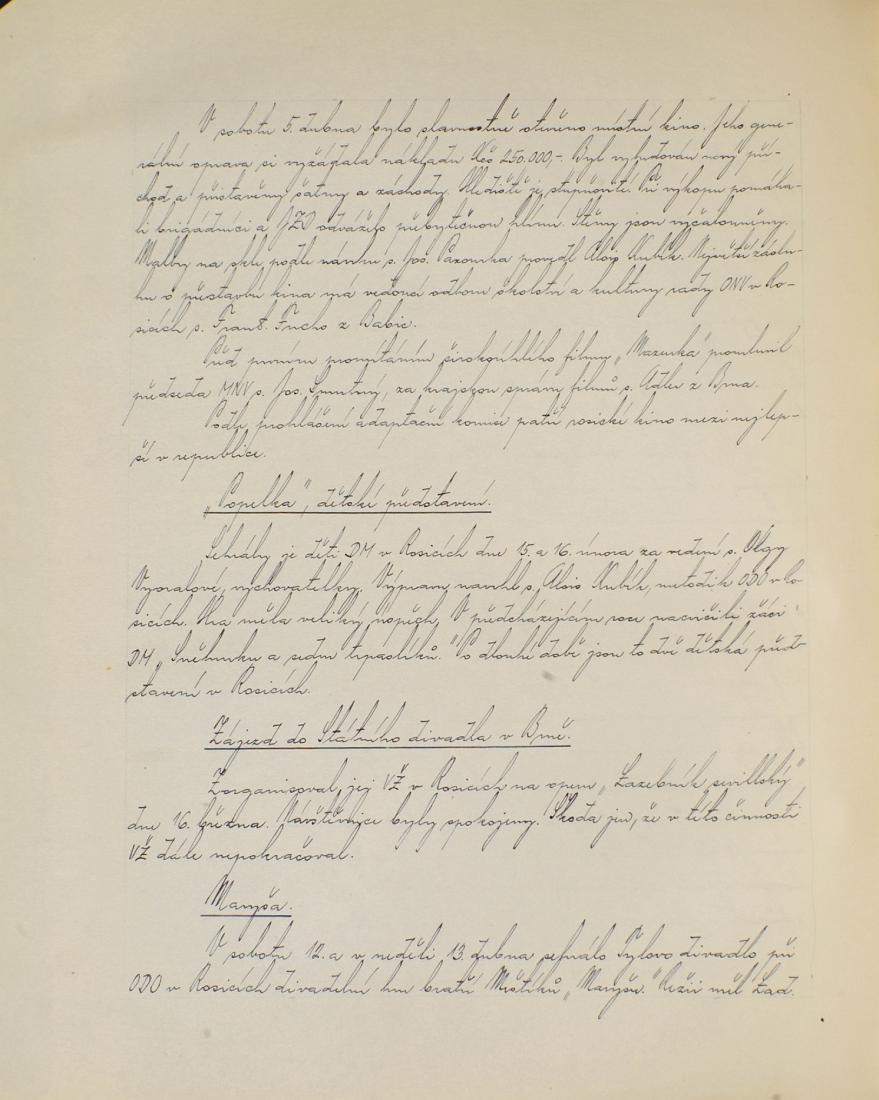 V sobotu 5. dubna bylo slavnostně otevřeno místní kino. Jeho gene-
rální oprava si vyžádala nákladu Kčs 250.000,-. Byl vybudován nový pří-
chod a přistavěny šatny a záchody. Hlediště je stupňovité. Při výkopu pomáha-
li brigádníci a JZD odváželo přebytečnou hlínu. Stěny jsou vyčalouněny.
Malby na skle podle návrhu s. Jos. Pazourka provedl Alois Kubík. Největší záslu-
hu o přestavbu kina má vedoucí odboru školství a kultury rady ONV v Ro-
sicích s. Frant. Fucho z Babic.
Před prvním promítáním širokoúhlého filmu „Mazurka" promluvil
předseda MNV s. Jos. Smutný, za krajskou správu filmů s. Adler z Brna.
Podle prohlášení adaptační komise patří rosické kino mezi nejlep-
ší v republice.
„Popelka", dětské představení.
Sehrály je děti DM v Rosicích dne 15. a 16. února za vedení s. Olgy
Vyoralové, vychovatelky. Výpravu navrhl s. Alois Kubík, metodik ODO v Ro-
sicích. Hra měla veliký úspěch. V předcházejícím roce nacvičili žáci
DM „Sněhurku a sedm trpaslíků." Po dlouhé době jsou to dvě dětská před-
stavení v Rosicích.
Zájezd do Státního divadla v Brně.
Zorganisoval jej VŽ v Rosicích na operu „Lazebník sevillský"
dne 16. března. Návštěvníce byly spokojeny. Škoda jen, že v této činnosti
VŽ dále nepokračoval.
Maryša.
V sobotu 12. a v neděli 13. dubna sehrálo Tylovo divadlo při
ODO v Rosicích divadelní hru bratří Mrštíků „Maryšu." Režii měl Lad.